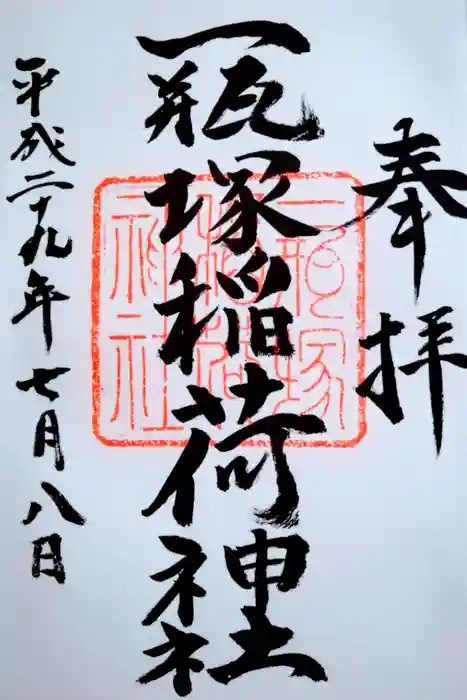 奉拝
一瓶塚稲荷神社
平成二十九年七月八日
神社